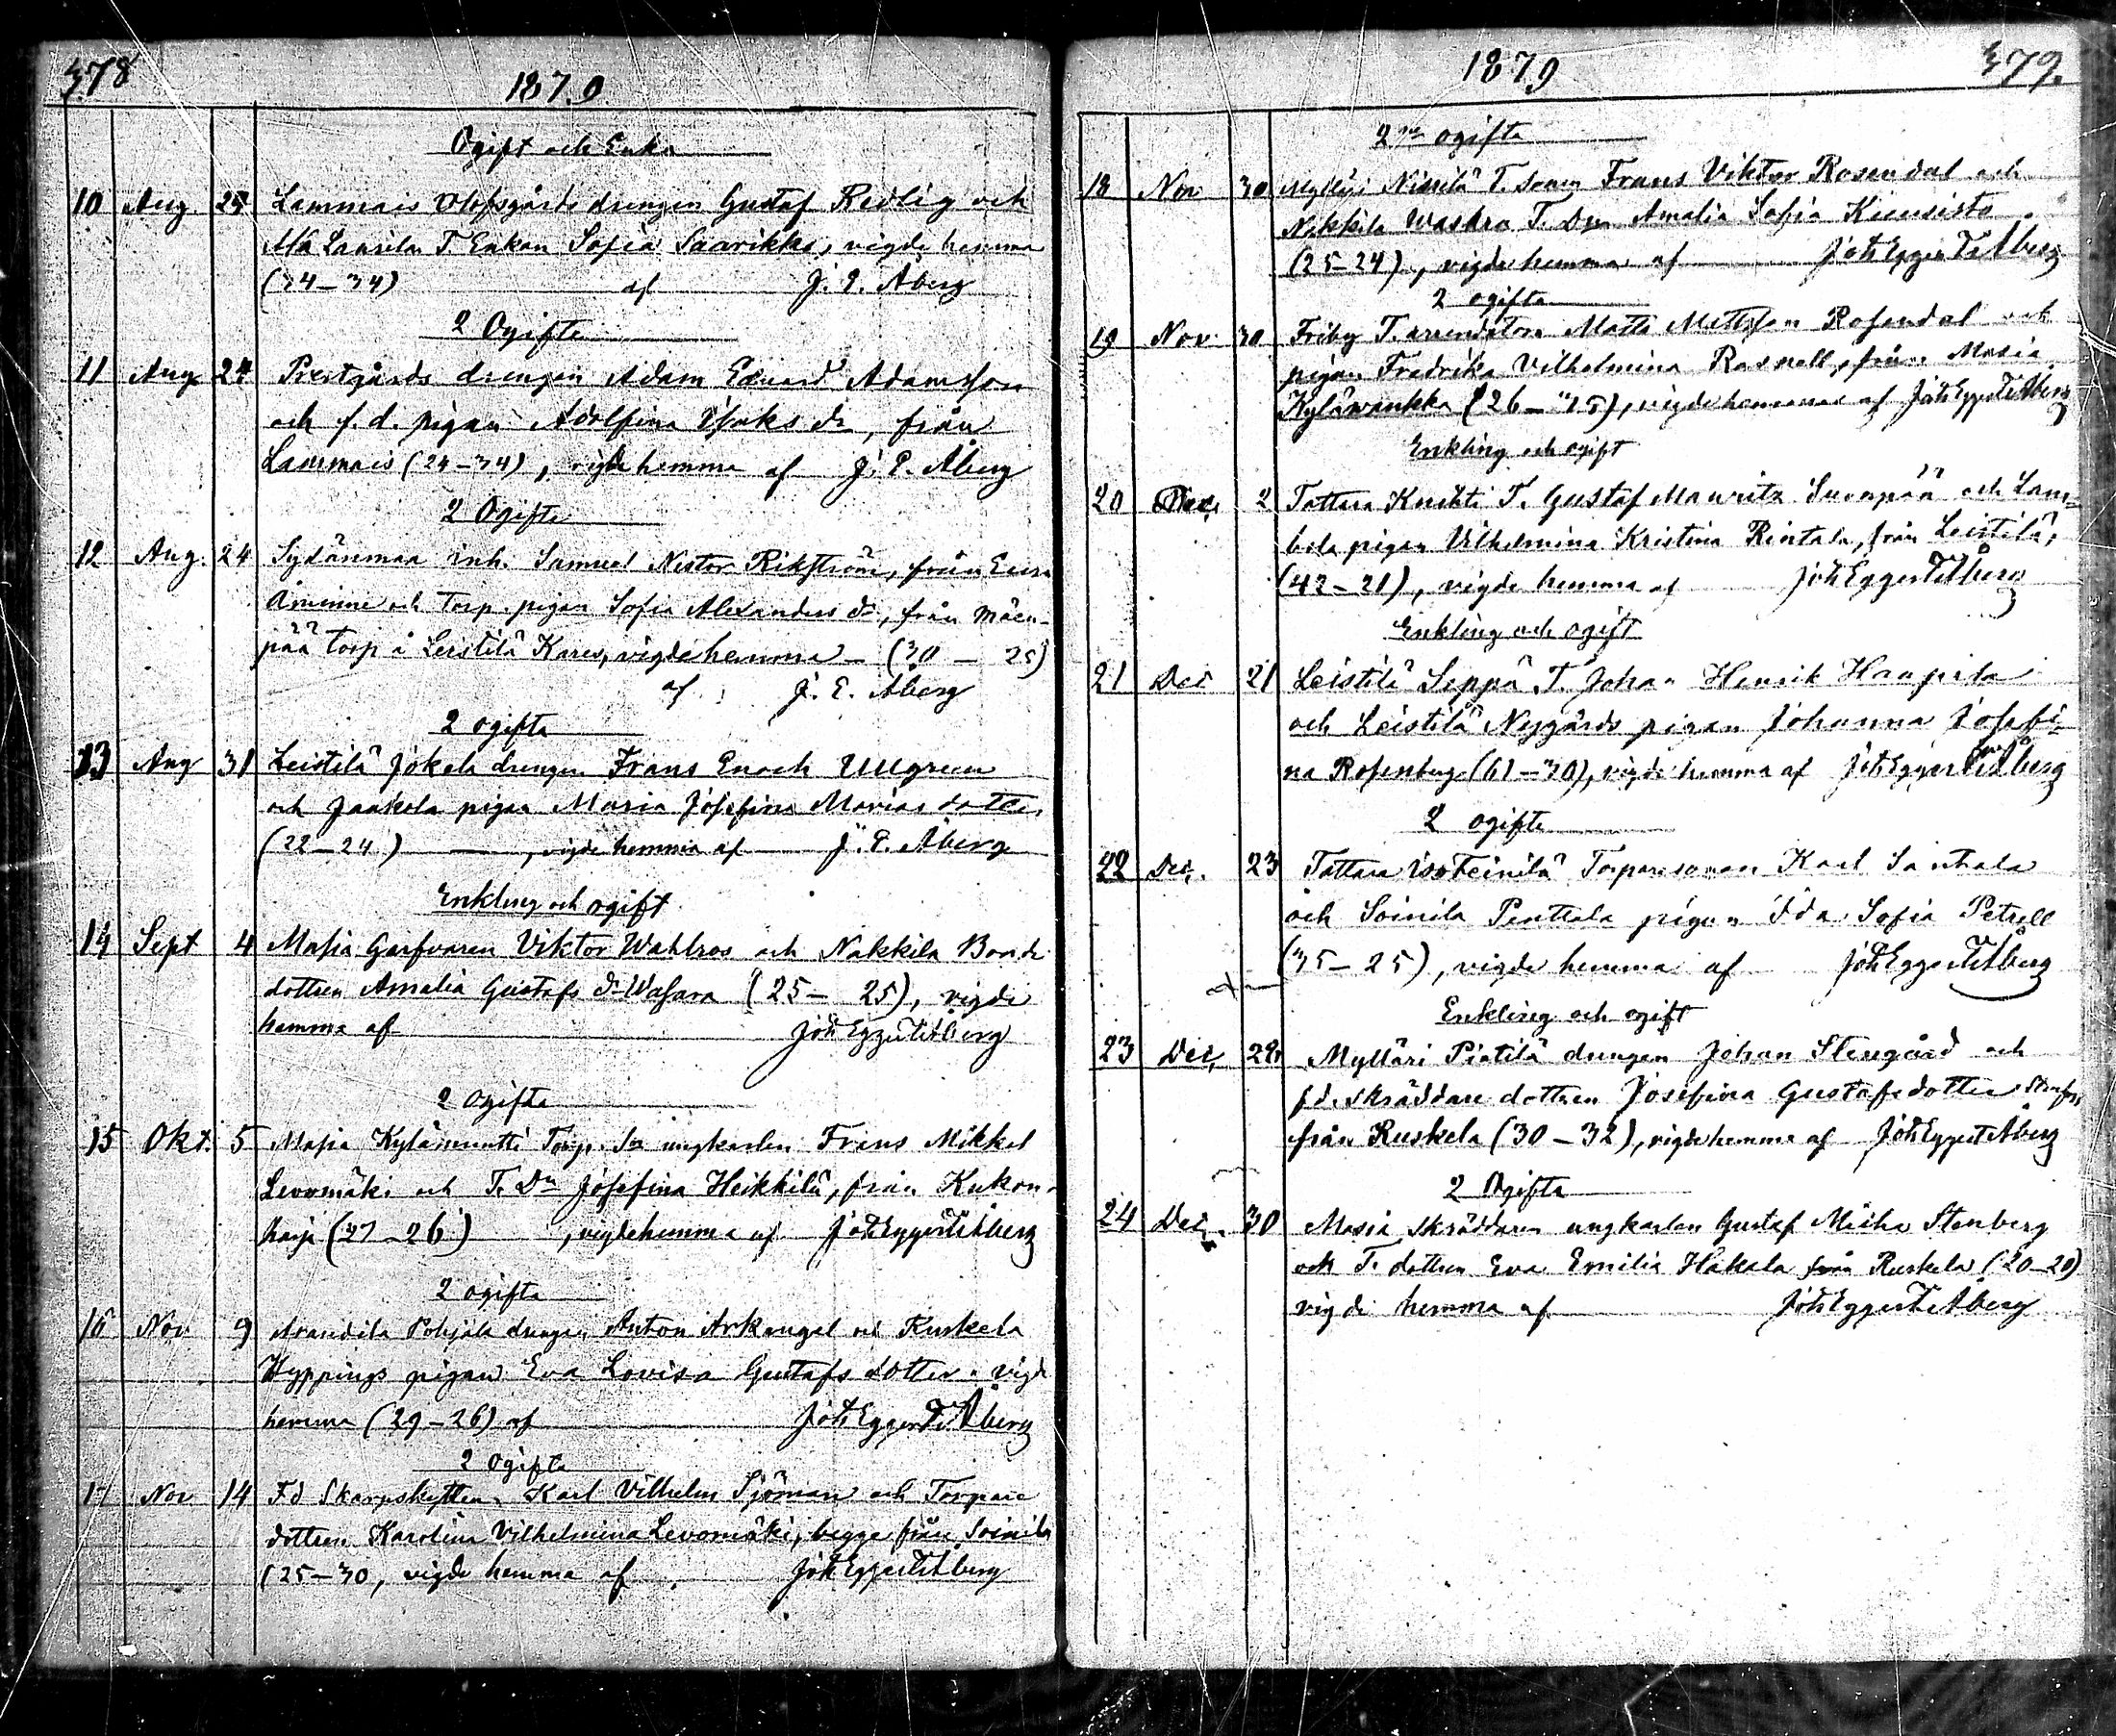 378
1879
Ogift och Enka
10 Aug. 25 Lammais Olofsgårds drengen Gustaf Redlig och
Laurila T. Enkan Sofia Saarikko, vigde hemma
(34–34) af J. E. Åberg
2 Ogifta
11 Aug 24 Prestgårds drengen Adam Eduard Adamsson
och f. d. pigan Adolfina Isaks dr, från
Lammais (24–34), vigde hemma af J. E. Åberg
2 Ogifta
12 Aug. 24 Sydänmaa inh. Samuel Nestor Rikström, från Eura
Åminne och Torp. pigan Sofia Alexanders dr, från Mäen-
pää Torp i Leistilä Kares, vigde hemma – (30 – 25)
af J. E. Åberg
2 ogifta
13 Aug 31 Leistilä Jokela drengen Frans Enoch Ullgreen
och Jaakola pigan Maria Josefina Marias dotter,
(22–24) , vigde hemma af J. E. Åberg
Enkling och ogift
14 Sept 4 Masia Garfvaren Viktor Wahlros och Nakkila Bonde
dottren Amalia Gustafs dr Wasara (25– 25), vigde
hemma af Joh Eggert Åberg
2 Ogifta
15 Okt. 5 Masia Torp. Sr ungkarlen Frans Mikkel
Levomäki och T. Dn Josefina Heikkilä, från Kukon-
harja (37–26) , vigde hemma af Joh Eggert Åberg
2 ogifta
16 Nov 9 Pohjala drengen Anton Arkangel och Ruskela
Hyppings pigan Eva Lovisa Gustafs dotter, vigde
hemma (29–26) af Joh Eggert Åberg
2 Ogifta
17 Nov 14 Fd Skarpskytten Karl Vilhelm Sjöman och Torpare
dottren Karolina Vilhelmina Levomäki, begge från Soinila
(25–30, vigde hemma af Joh Eggert Åberg
1879
379.
2ne ogifta
18 Nov 30 Mylläri Nissilä T. Sonen Frans Viktor Rosendal och
Nakkila T. Dn Amalia Sofia Kiensisto
(25–24), vigde hemma af Joh Eggert Åberg
2 ogifta
19 Nov. 30 Friby T. arrendatorn Matts Mattsson Rosendal och
pigan Fredrika Vilhelmina Rosnell, från Masia
Kylävainkka (26–35), vigde hemma af Joh Eggert Åberg
Enkling och ogift
20 Dec. 2 Tattara Knihti T. Gustaf Mauritz Suonpää och Lam-
bola pigan Vilhelmina Kristina Rintala, från Leistilä,
(42–21), vigde hemma af Joh Eggert Åberg
Enkling och ogift
21 Dec 21 Leistilä Seppä T. Johan Henrik
och Leistilä Nygårds pigan Johanna Josefi-
na Rosenberg (61–30), vigde hemma af Joh Eggert Åberg
2 ogifta
22 Dec. 23 Tattara isoTeinilä Torparesonen Karl Santala
och Soinila Penttala pigan Ida Sofia Petrell
(35–25), vigde hemma af Joh Eggert Åberg
Enkling och ogift
23 Dec. 28 Mylläri Piotilä drengen Johan Stengård och
f.d. skräddare dottren Josefina Gustafsdotter
från Ruskela (30–32), vigde hemma af Joh Eggert Åberg
2 Ogifta
24 Dec. 30 Masia skräddaren ungkarlen Gustaf Micha Stenberg
och T. dottren Eva Emilia Hakala från Ruskela (20–20)
vigde hemma af Joh Eggert Åberg